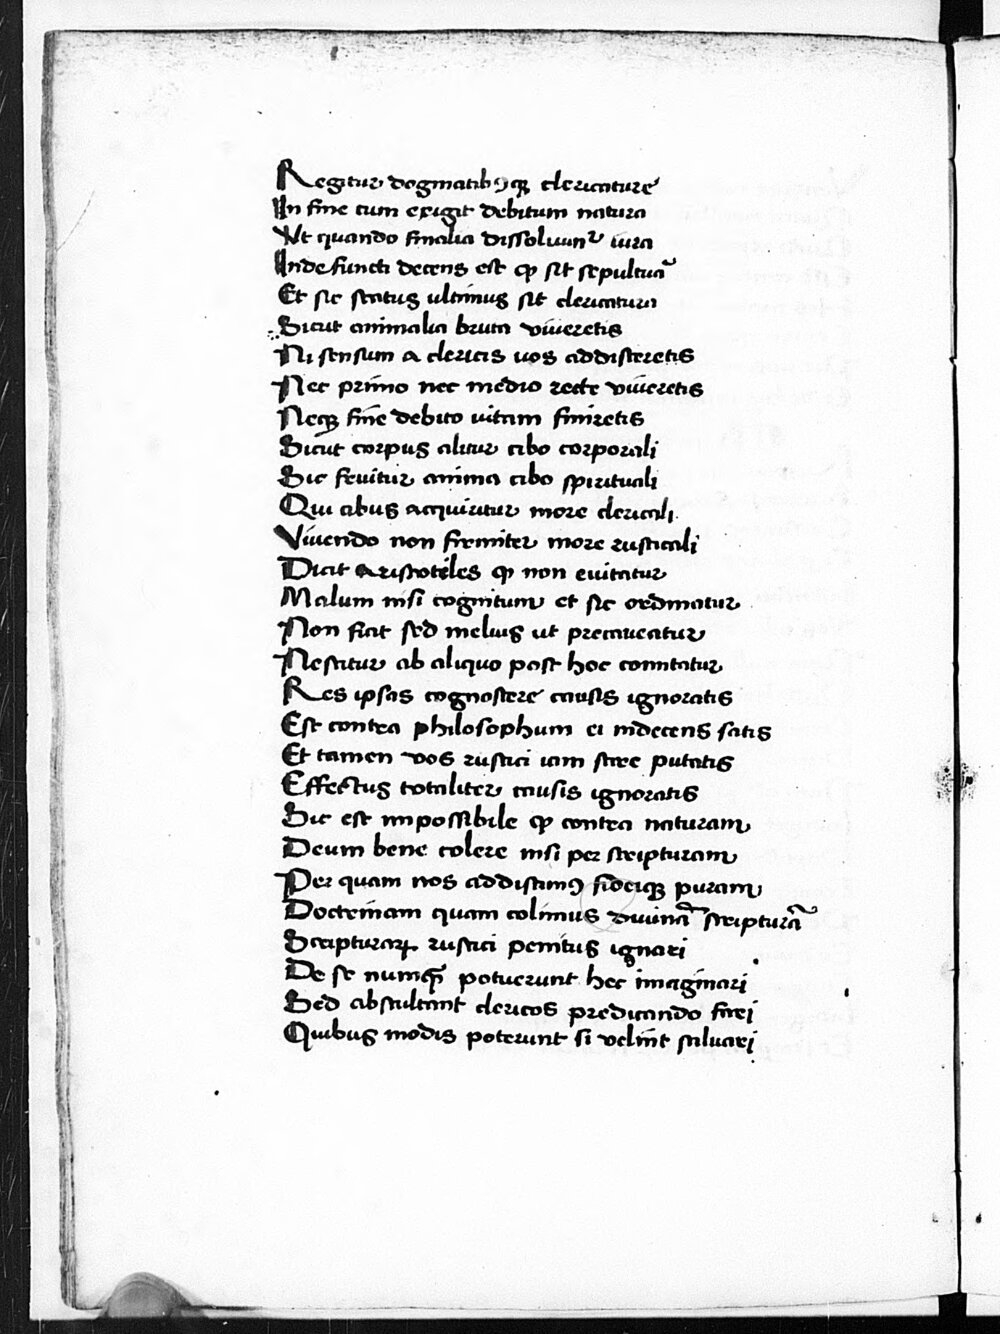 Regitur dogmatibꝰqꝫ clericature
In fine cum exigit debitum natura
Ut quando finalia dissoluunt᷑ iura
Inde functi decens est ꝙ sit sepultur̄a
Et sic status ultimus sit clericatura
Sicut animalia bruta viveretis
Ni sensum a clericis vos addisceretis
Nec primo nec medio recte viveretis
Neqꝫ fine debito vitam finiretis
Sicut corpus alitur cibo corporali
Sic fruitur anima cibo spirituali
Qui cibus acquiritur more clericali
Vivendo non firmiter more rusticali
Dicit Aristoteles ꝙ non evitatur
Malum nisi cognitum et sic ordinatur
Non fiat sed melius ut precaveatur
Nescitur ab aliquo post hoc comitatur
Res ipsas cognoscere causis ignoratis
Est contra philosophum ei indecens satis
Et tamen vos rustici iam scire putatis
Effectus totaliter causis ignoratis
Sic est impossibile ꝙ contra naturam
Deum bene colere nisi per scripturam
Per quam nos addiscimꝰ fideiqꝫ puram
Doctrinam quam colimus divinā scripturā
Scripturaꝝ rustici penitus ignari
De se numqꝫ̄ potuerunt hec imaginari
Sed abscultant clericos predicando fari
Quibus modis poterunt si velint salvari